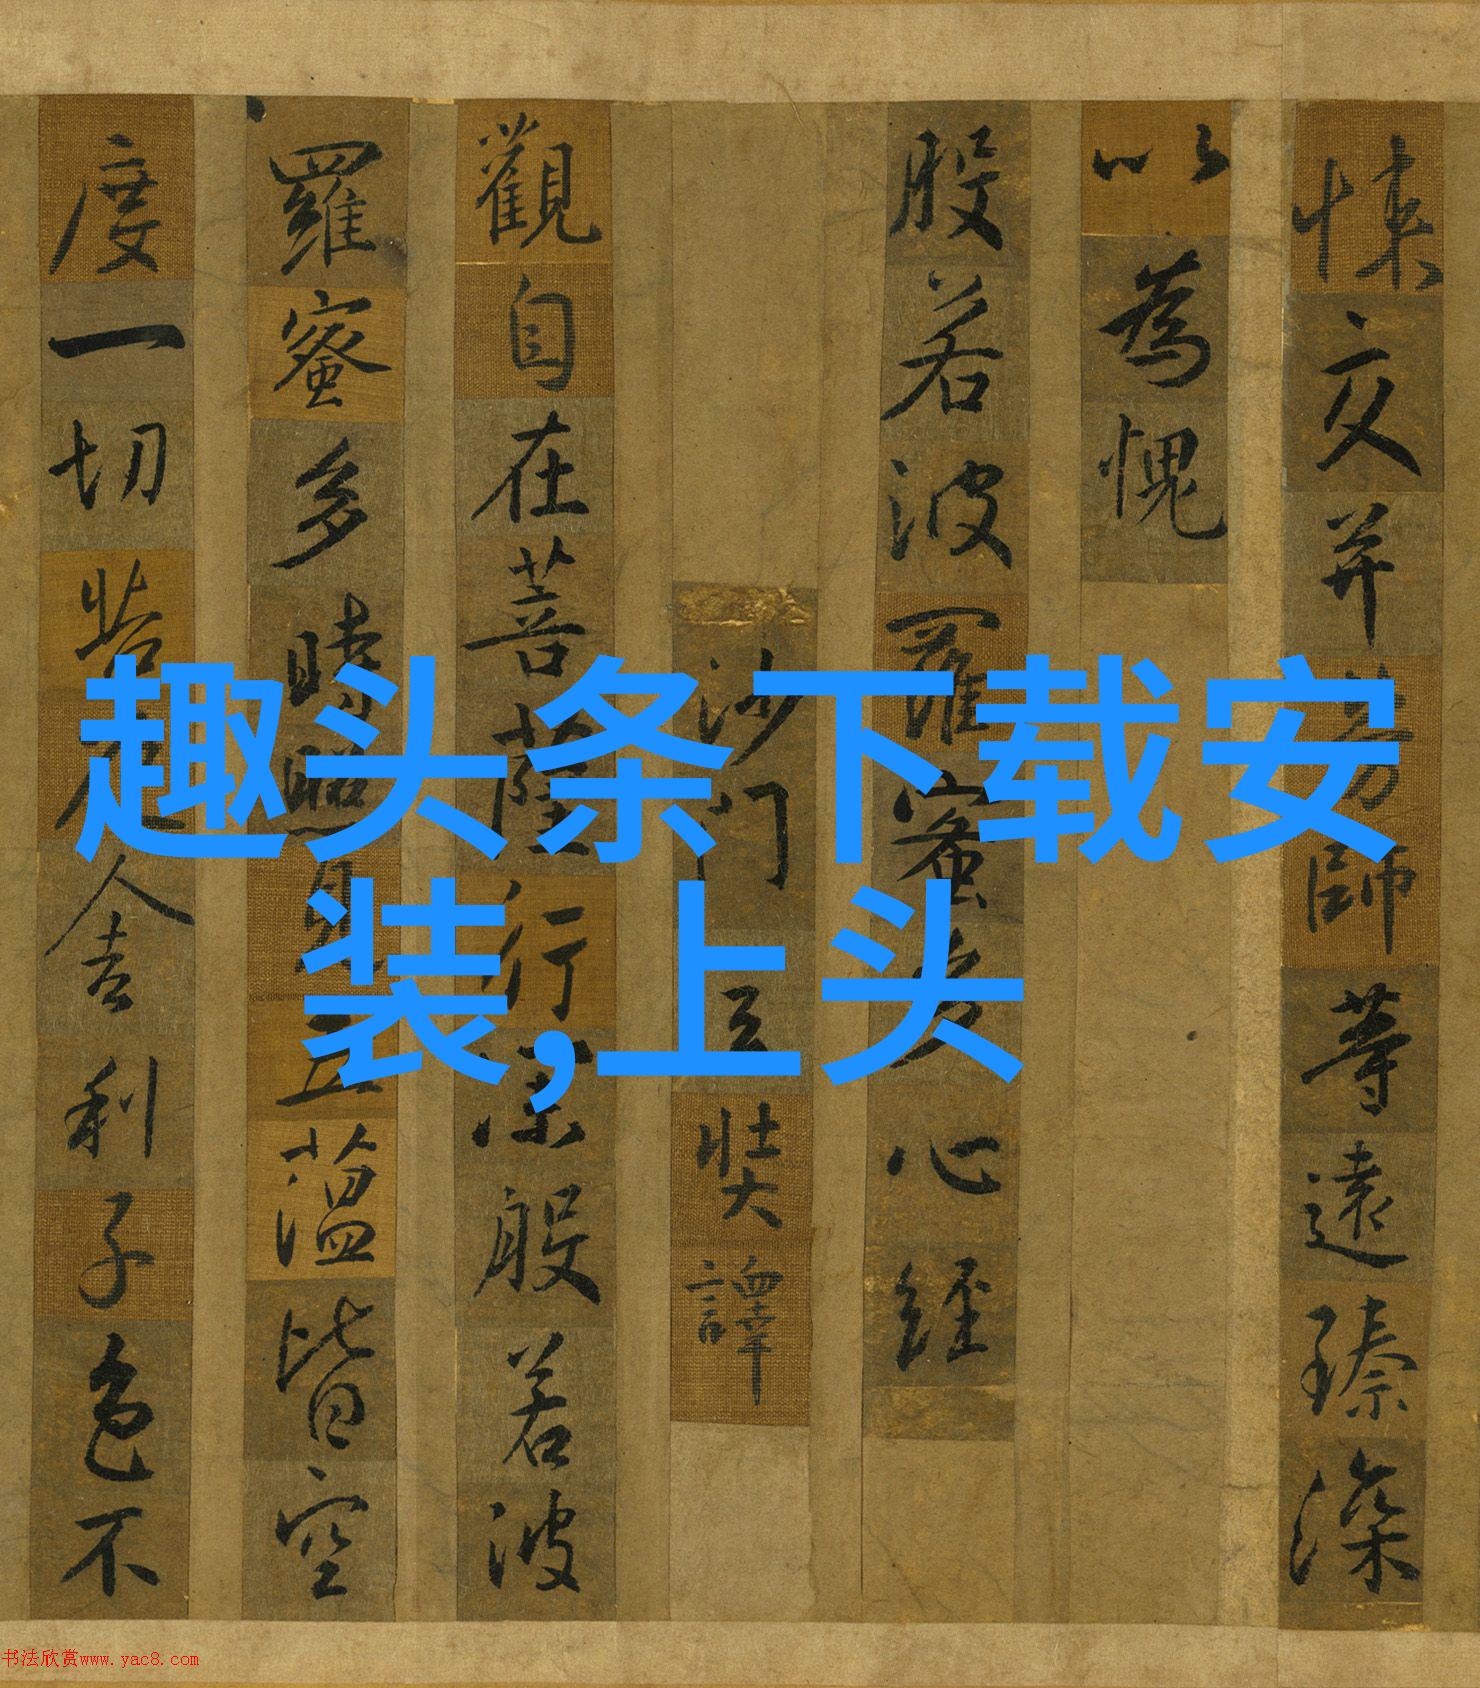 悚交并師等遠臻深
以為愧
般若波羅蜜多心經
沙門玄奘譯
觀自在菩薩行深般若波
羅蜜多時照見五蘊皆空
度一切苦厄舍利子色不
趣头条下载安
装,上头
书法欣赏www.yac8.com